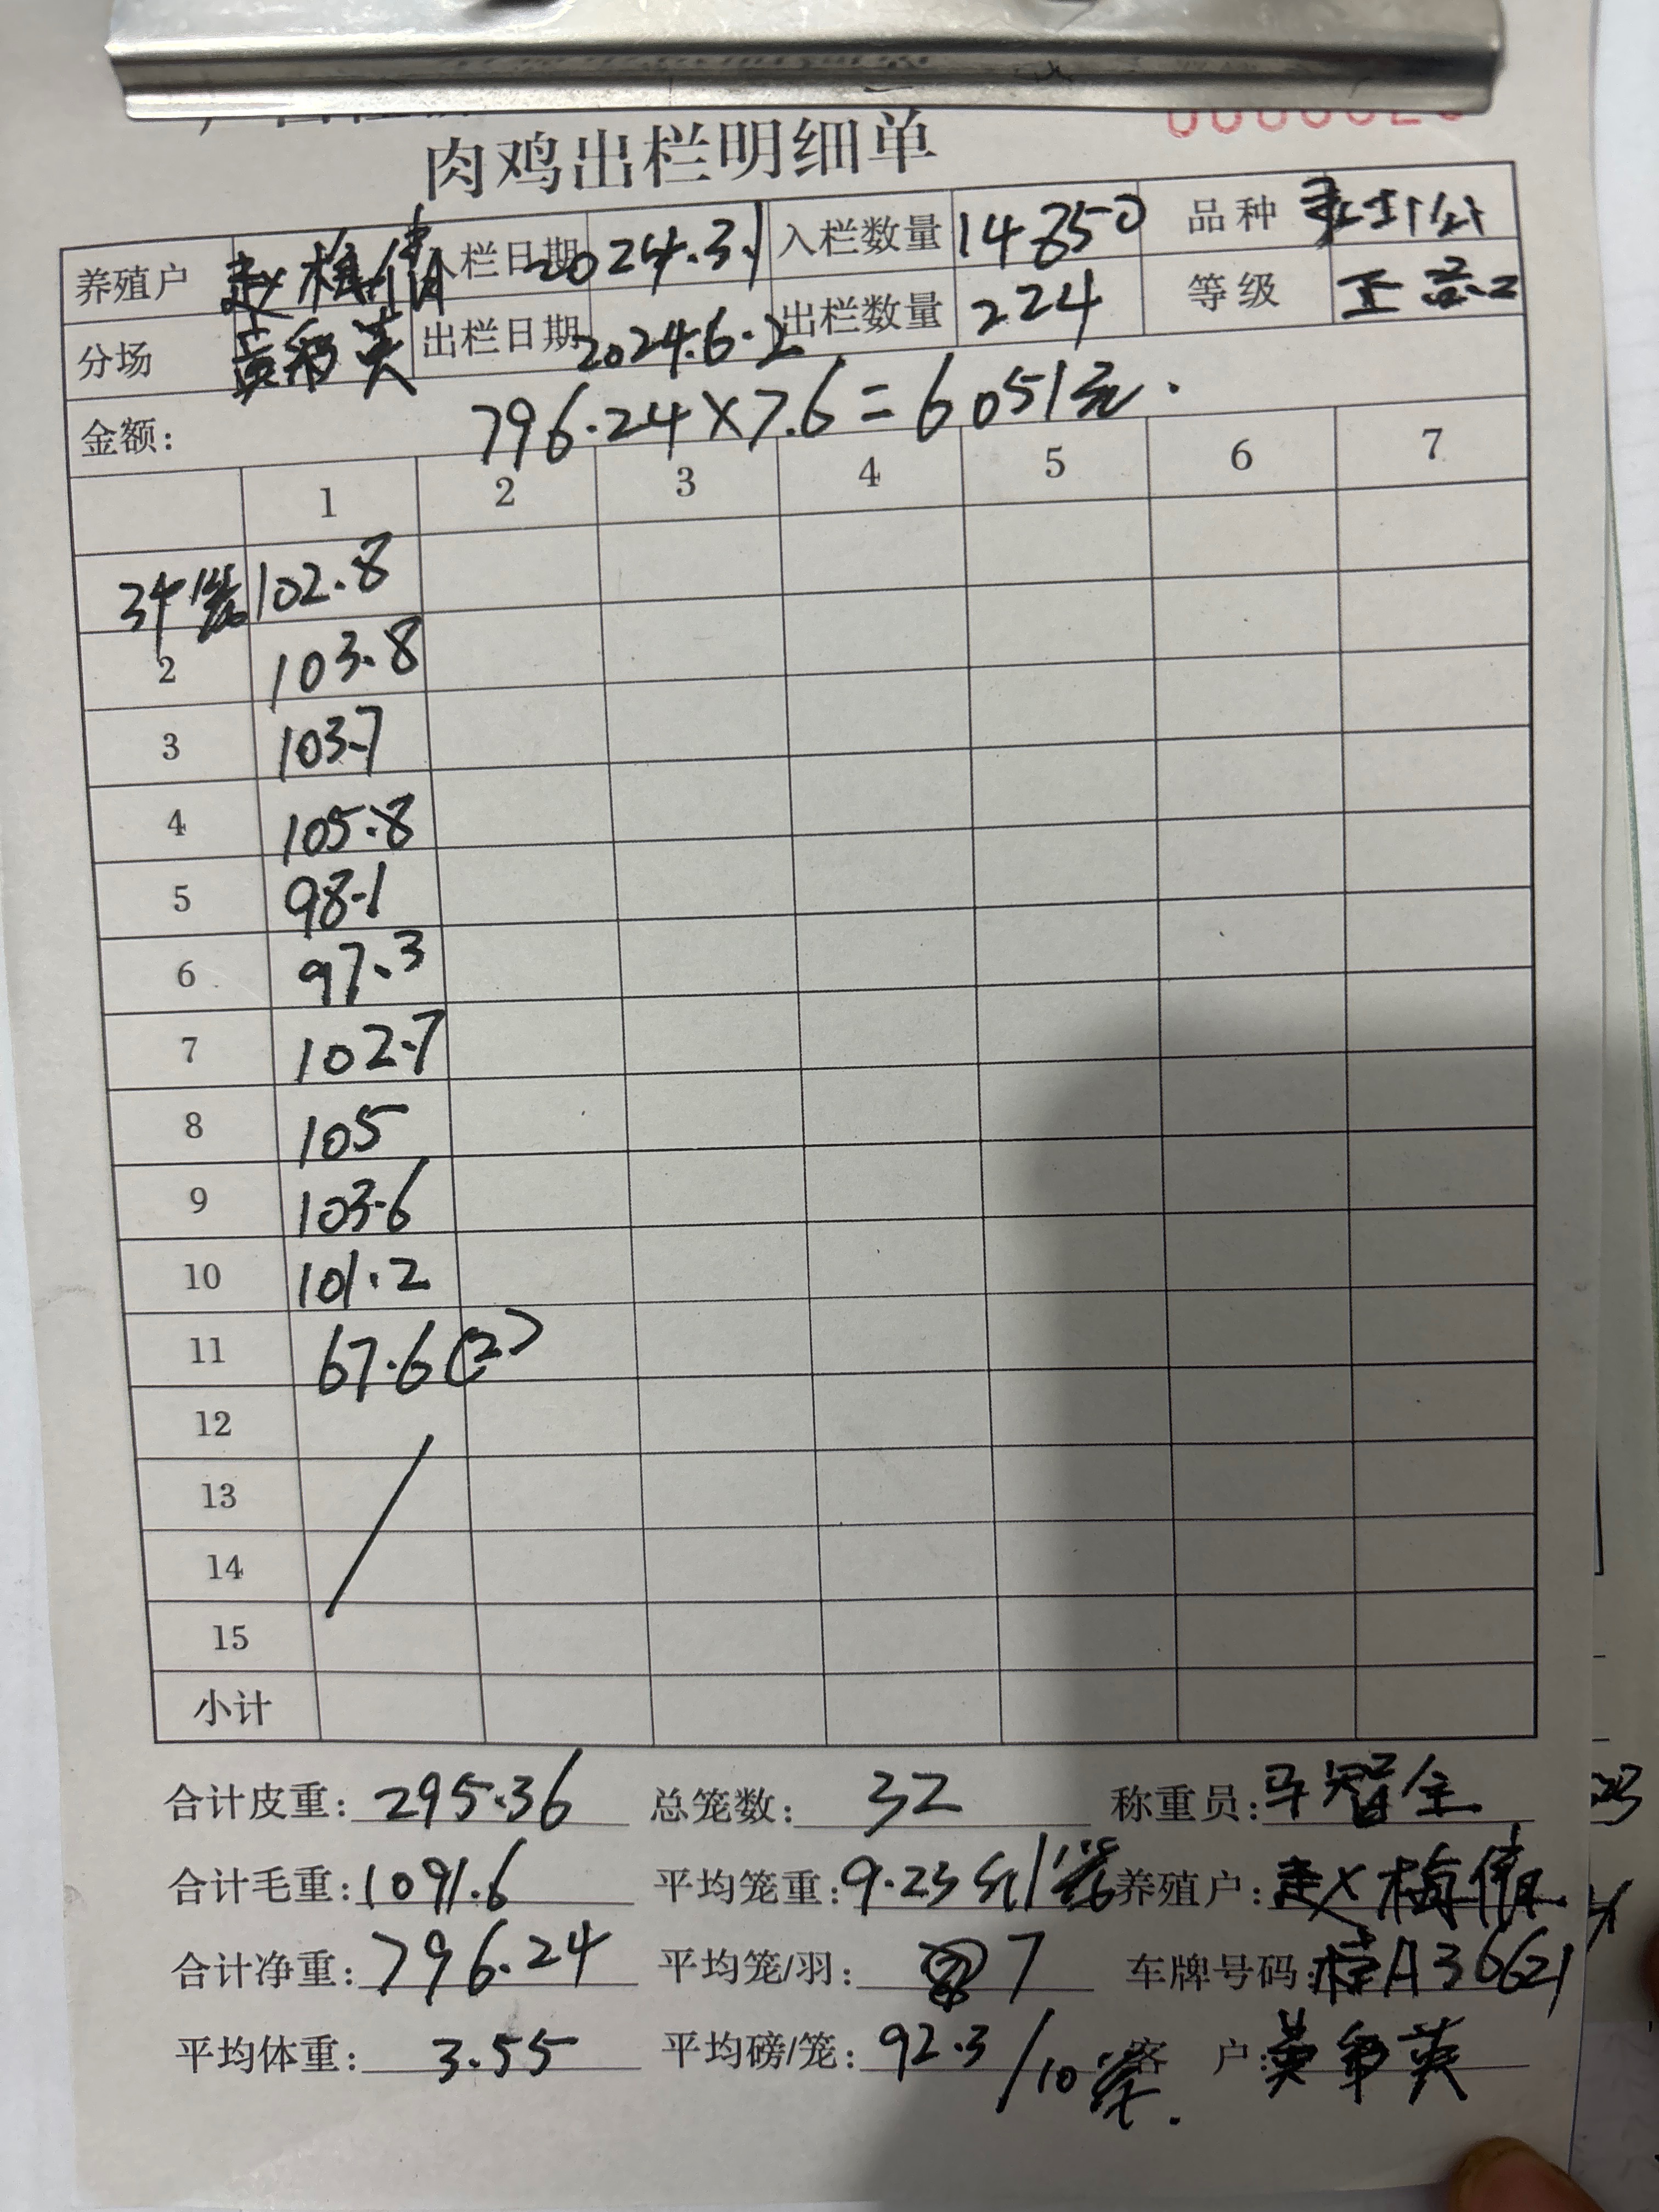 肉鸡出栏明细单
养殖户 赵梅倩 入栏日期 2024.3.1 入栏数量 14850 品种
分场 黄彩英 出栏日期 2024.6.2 出栏数量 224 等级 正品
金额: 796.24×7.6=6051元.
1 2 3 4 5 6 7
3个1笼 102.8
2 103.8
3 103.7
4 105.8
5 98.1
6 97.3
7 102.7
8 105
9 103.6
10 101.2
11 67.6(2)
12
13
14
15
小计
合计皮重: 295.36 总笼数: 32 称重员: 马智全
合计毛重: 1091.6 平均笼重: 9.23斤/笼 养殖户: 赵梅倩
合计净重: 796.24 平均笼/羽: 7 车牌号码: 桂A36621
平均体重: 3.55 平均磅/笼: 92.3/10笼. 客户: 黄彩英